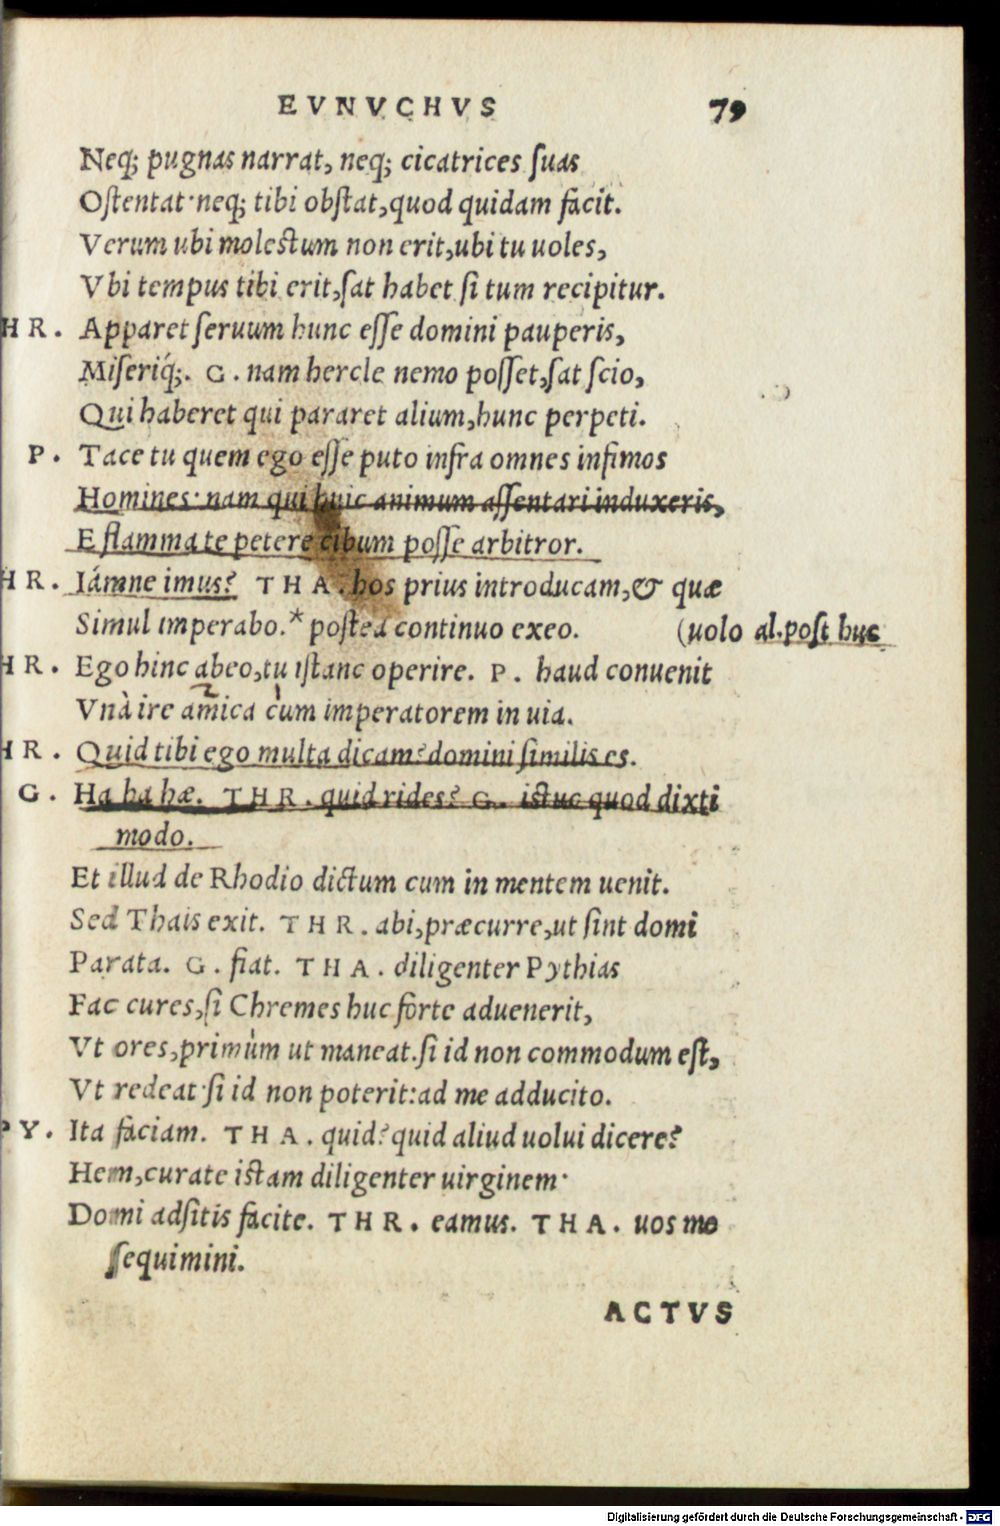 EVNVCHVS 79
Neq; pugnas narrat, neq; cicatrices ſuas
Oſtentat·neq; tibi obſtat,quod quidam facit.
Verum ubi moleſtum non erit,ubi tu uoles,
Vbi tempus tibi erit,ſat habet ſi tum recipitur.
HR. Apparet ſeruum hunc eſſe domini pauperis,
Miſeriq́;. G. nam hercle nemo poſſet,ſat ſcio,
Qui haberet qui pararet alium,hunc perpeti.
P. Tace tu quem ego eſſe puto infra omnes infimos
Homines·nam qui huic animum aſſentari induxeris,
E flamma te petere cibum poſſe arbitror.
HR. Iámne imus? THA. hos prius introducam,& quæ
Simul imperabo.* poſtea continuo exeo. (uolo al.poſt huc
HR. Ego hinc abeo,tu iſtanc operire. P. haud conuenit
Vnà ire amica cum imperatorem in uia.
HR. Quid tibi ego multa dicam?domini ſimilis es.
G. Ha ha hæ. THR. quid rides? G. iſtuc quod dixti
modo.
Et illud de Rhodio dictum cum in mentem uenit.
Sed Thais exit. THR. abi,præcurre,ut ſint domi
Parata. G. fiat. THA. diligenter Pythias
Fac cures,ſi Chremes huc forte aduenerit,
Vt ores,primùm ut maneat.ſi id non commodum eſt,
Vt redeat·ſi id non poterit:ad me adducito.
PY. Ita faciam. THA. quid?quid aliud uolui dicere?
Hem,curate iſtam diligenter uirginem·
Domi adſitis facite. THR. eamus. THA. uos me
ſequimini.
ACTVS
Digitalisierung gefördert durch die Deutsche Forschungsgemeinschaft - DFG